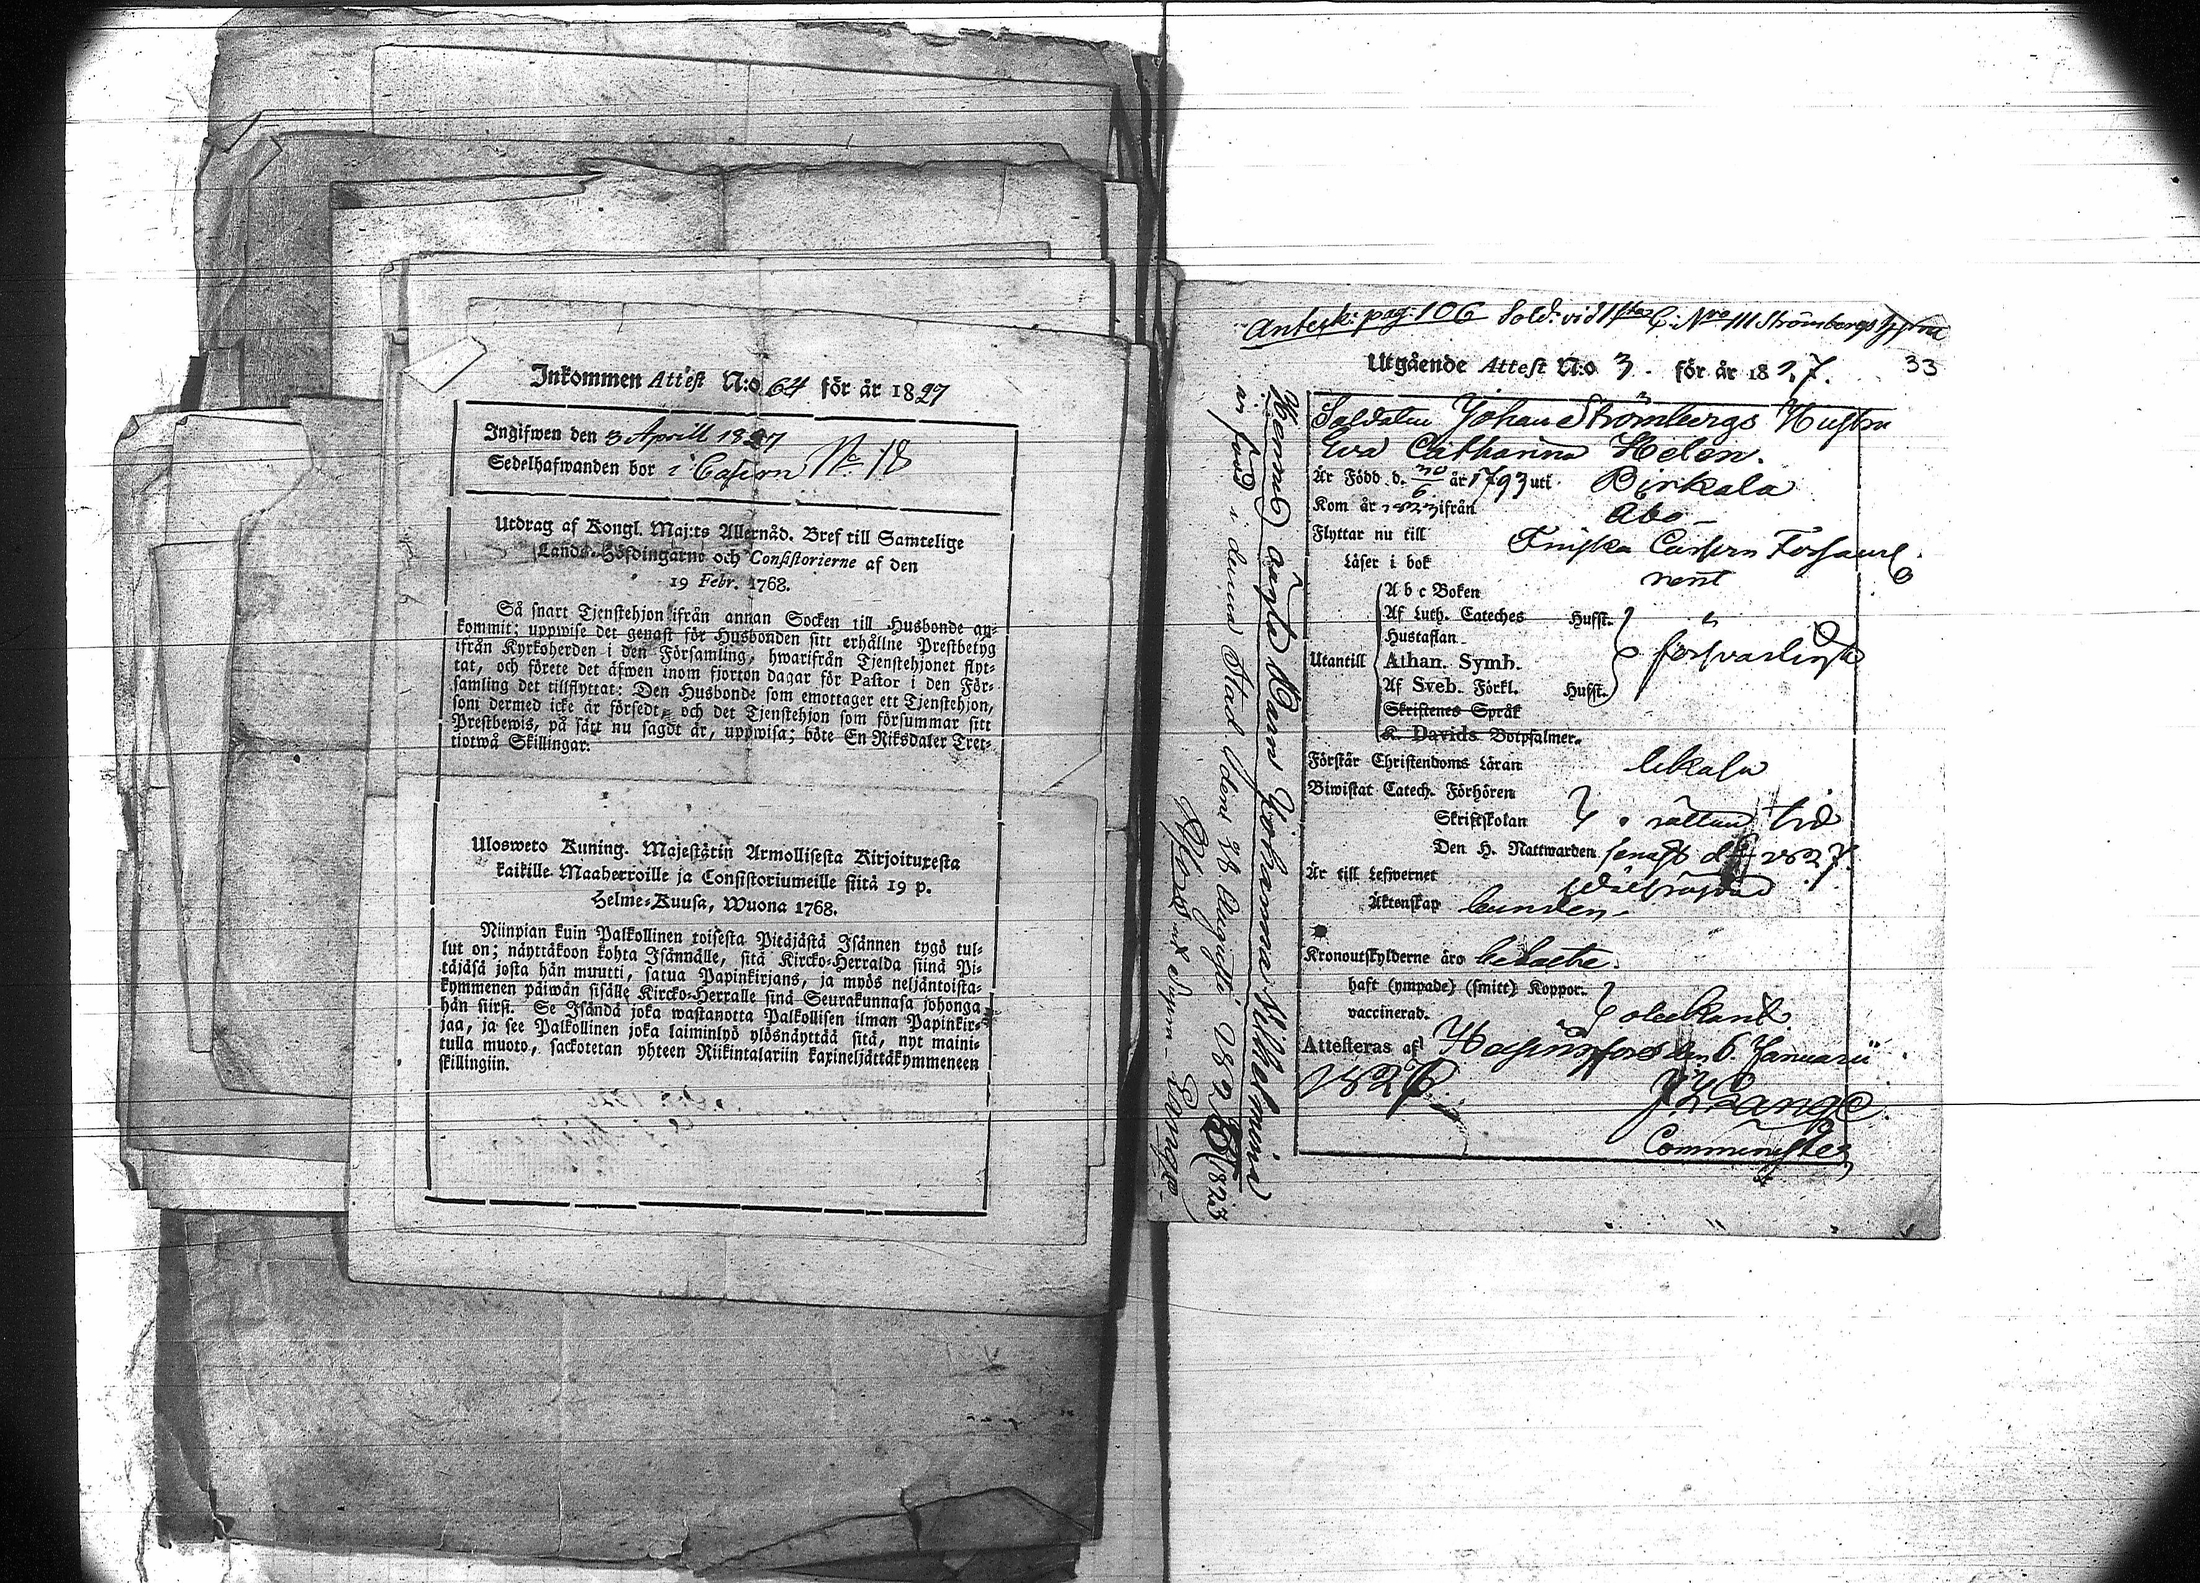 Inkommen Attest N:o 64 för år 1827
Ingifwen den 3 Aprill 1827
Sedelhafwanden bor i Casern No 18
Utdrag af Kongl. Maj:ts Allernåd. Bref till Samtelige
Lands-Höfdingarne och Consistorierne af den
19 Febr. 1768.
Så snart Tjenstehjon ifrån annan Socken till Husbonde an-
kommit; uppwise det genast för Husbonden sitt erhållne Prestbetyg
ifrån Kyrkoherden i den Församling, hwarifrån Tjenstehjonet flyt-
tat, och förete det äfwen inom fjorton dagar för Pastor i den För-
samling det tillflyttat: Den Husbonde som emottager ett Tjenstehjon,
som dermed icke är försedt, och det Tjenstehjon som försummar sitt
Prestbewis, på sätt nu sagdt är, uppwisa; böte En Riksdaler Tret-
tiotwå Skillingar.
Ulosweto Kuning. Majestätin Armollisesta Kirjoituxesta
kaikille Maaherroille ja Consistoriumeille siitä 19 p.
Helme-Kuusa, Wuona 1768.
Niinpian kuin Palkollinen toisesta Pitäjästä Isännen tygö tul-
lut on; näyttäkoon kohta Isännälle, sitä Kircko-Herralda siinä Pi-
täjäsä josta hän muutti, satua Papinkirjans, ja myös neljäntoista-
kymmenen päiwän sisälle Kircko-Herralle sinä Seurakunnasa johonga
hän siirsi. Se Isändä joka wastanotta Palkollisen ilman Papinkir-
jaa, ja see Palkollinen joka laiminlyö ylösnäyttää sitä, nyt maini-
tulla muoto, sackotetan yhteen Riikintalariin kaxineljättäkymmeneen
skillingiin.
Anteck: pag: 106 Sold: vid 1sta C. No 111 Strömbergs hustru
33
Utgående Attest N:o 3. för år 1827.
Soldaten Johan Strömbergs Hustru
Eva Catharina Helen.
Är Född d. 30/6 år 1793 uti Birkala
Kom år 1823 ifrån Åbo
Flyttar nu till Finska Casern Församl.
Läser i bok rent
A b c Boken
Af Luth. Cateches Husst. "
Hustaflan
Utantill Athan. Symb. försvarligt
Af Sveb. Förkl. Husst.
Skriftenes Språk
K. Davids Botpsalmer.
Förstår Christendoms Läran
Biwistat Catech. Förhören
Skriftskolan i rättan tid
Den H. Nattwarden senast d. 1827.
Är till Lefwernet
Äktenskap bunden
Kronoutskylderne äro betalte.
haft (ympade) (smitt) Koppor.
vaccinerad. obekant.
Attesteras af Helsingfors den 6 Januarii
1827 Lange
Comminister
Hennes ägta Barn Johanna Wilhelmina
är född i denna Stad den 28 Augusti 1823 (1823
Lange